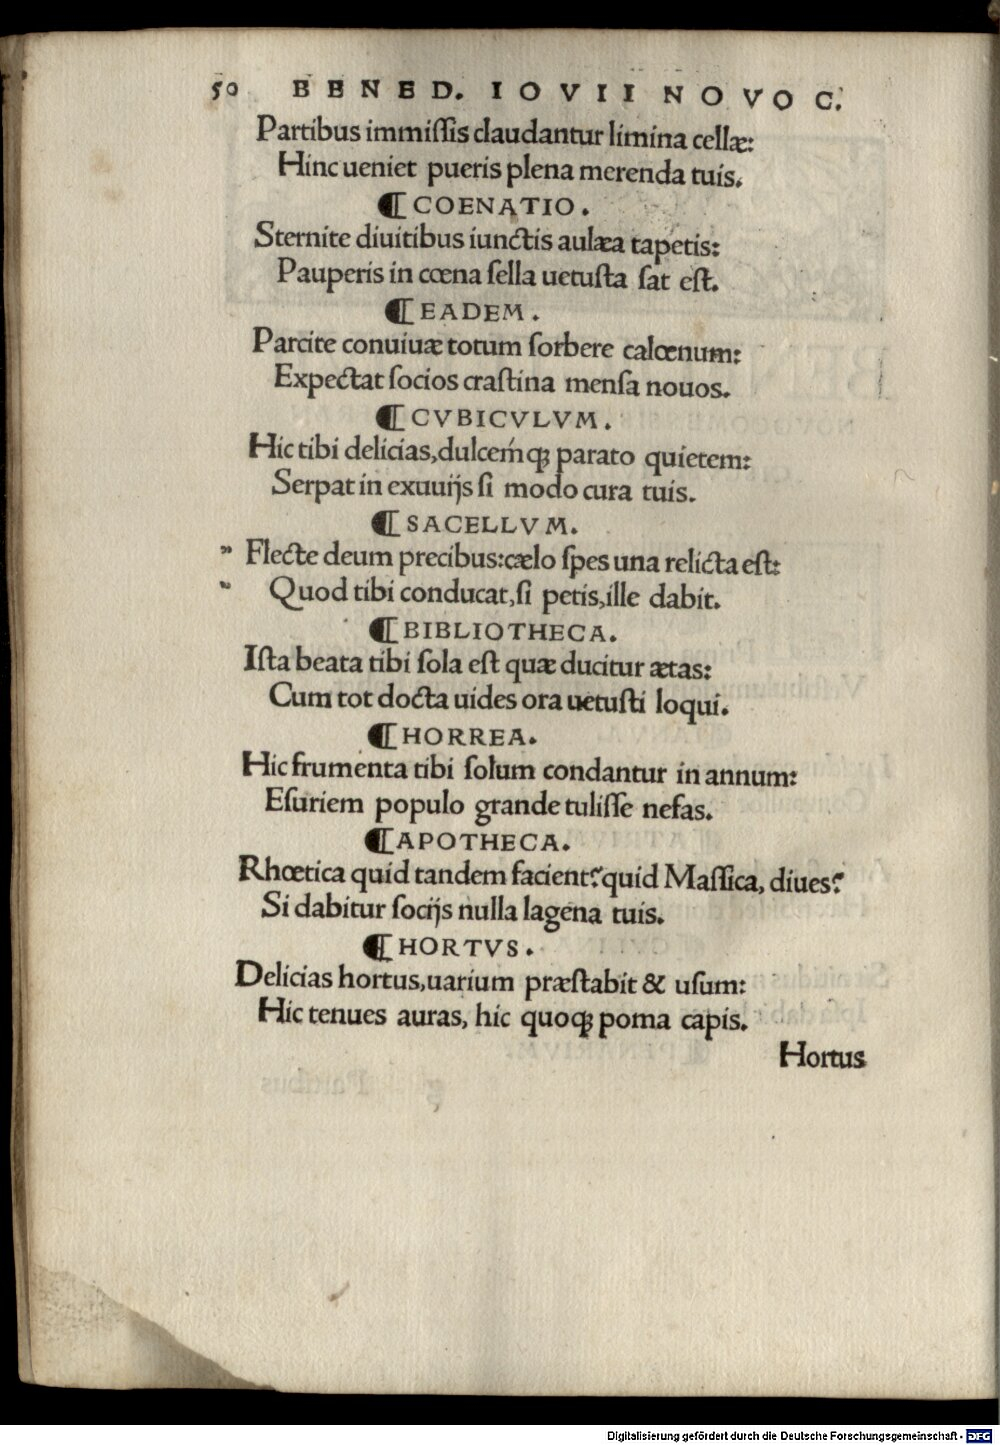 50 BENED. IOVII NOVOC.
Partibus immiſſis claudantur limina cellæ:
Hinc ueniet pueris plena merenda tuis.
¶ COENATIO.
Sternite diuitibus iunctis aulæa tapetis:
Pauperis in cœna ſella uetuſta ſat eſt.
¶ EADEM.
Parcite conuiuæ totum ſorbere calœnum:
Expectat ſocios craſtina menſa nouos.
¶ CVBICVLVM.
Hic tibi delicias, dulcemq́ꝫ parato quietem:
Serpat in exuuijs ſi modo cura tuis.
¶ SACELLVM.
" Flecte deum precibus: cælo ſpes una relicta eſt:
" Quod tibi conducat, ſi petis, ille dabit.
¶ BIBLIOTHECA.
Iſta beata tibi ſola eſt quæ ducitur ætas:
Cum tot docta uides ora uetuſti loqui.
¶ HORREA.
Hic frumenta tibi ſolum condantur in annum:
Eſuriem populo grande tuliſſe nefas.
¶ APOTHECA.
Rhœtica quid tandem facient? quid Maſſica, diues?
Si dabitur ſocijs nulla lagena tuis.
¶ HORTVS.
Delicias hortus, uarium præſtabit & uſum:
Hic tenues auras, hic quoqꝫ poma capis.
Hortus
Digitalisierung gefördert durch die Deutsche Forschungsgemeinschaft - DFG